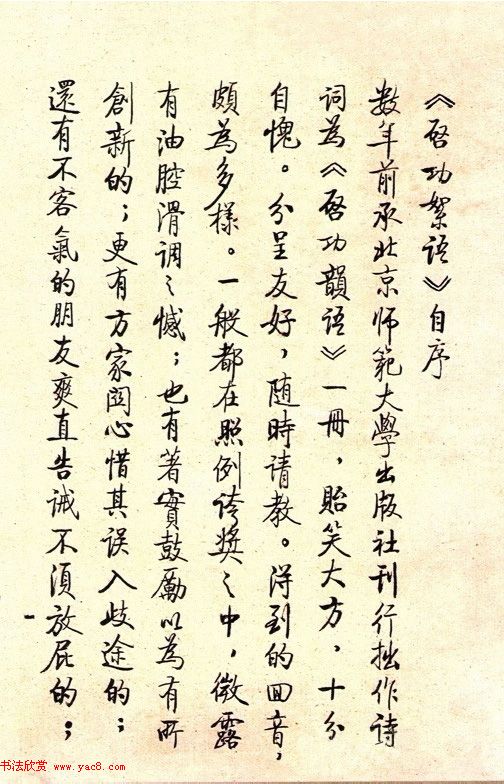 《启功絮语》自序
数年前承北京师範大學出版社刊行拙作詩
词為《启功韻语》一冊，貽笑大方，十分
自愧。分呈友好，随時请教。得到的回音，
頗為多樣。一般都在照例誇奬之中，微露
有油腔滑调之憾；也有著實鼓勵以為有所
創新的；更有方家関心惜其误入歧途的；
還有不客氣的朋友爽直告诫不須放屁的；
书法欣赏 www.yac8.com